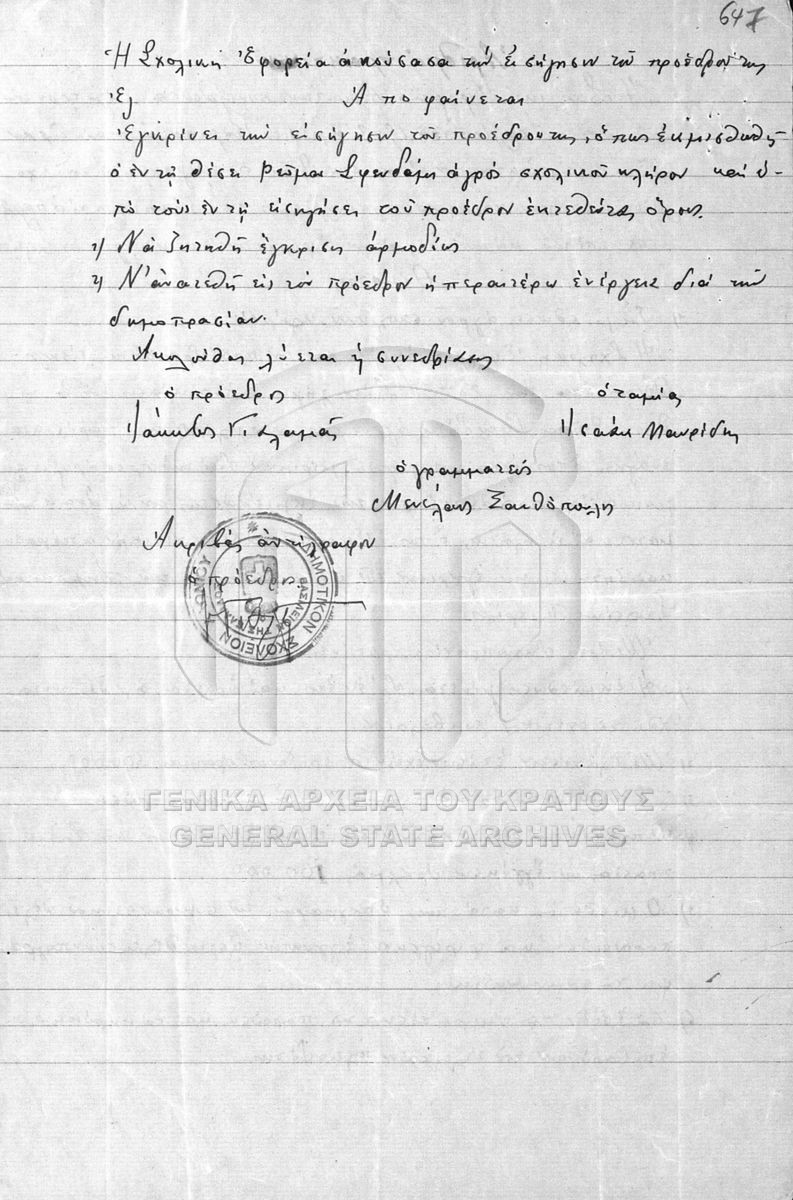 647
Ἡ Σχολική Ἐφορεία ἀκούσασα τήν εἰσήγησιν τοῦ προέδρου της
Ἐγ Ἀποφαίνεται
Ἐγκρίνει τήν εἰσήγησιν τοῦ προέδρου της, ὅπως ἐκμισθωθῇ
ὁ ἐν τῇ θέσει Ρεῦμα Σφενδάμη ἀγρός σχολικοῦ κλήρου καί ὑ-
πό τούς ἐν τῇ εἰσηγήσει τοῦ προέδρου ἐκτεθέντας ὅρους.
1) Νά ζητηθῇ ἔγκρισις ἁρμοδίως
2) Ν' ἀνατεθῇ εἰς τόν πρόεδρον ἡ περαιτέρω ἐνέργεια διά τήν
δημοπρασίαν.
Ἀκολούθως λύεται ἡ συνεδρίασις
ὁ πρόεδρος ὁ ταμίας
Ἰάκωβος Ἰσαάκ Μαυρίδης
ὁ γραμματεύς
Μενέλαος Ξανθόπουλος
Ἀκριβές ἀντίγραφον
ὁ πρόεδρος
ΔΗΜΟΤΙΚΟΝ ΣΧΟΛΕΙΟΝ
ΒΑΣΙΛΕΙΟΝ ΤΗΣ
ΓΕΝΙΚΑ ΑΡΧΕΙΑ ΤΟΥ ΚΡΑΤΟΥΣ
GENERAL STATE ARCHIVES